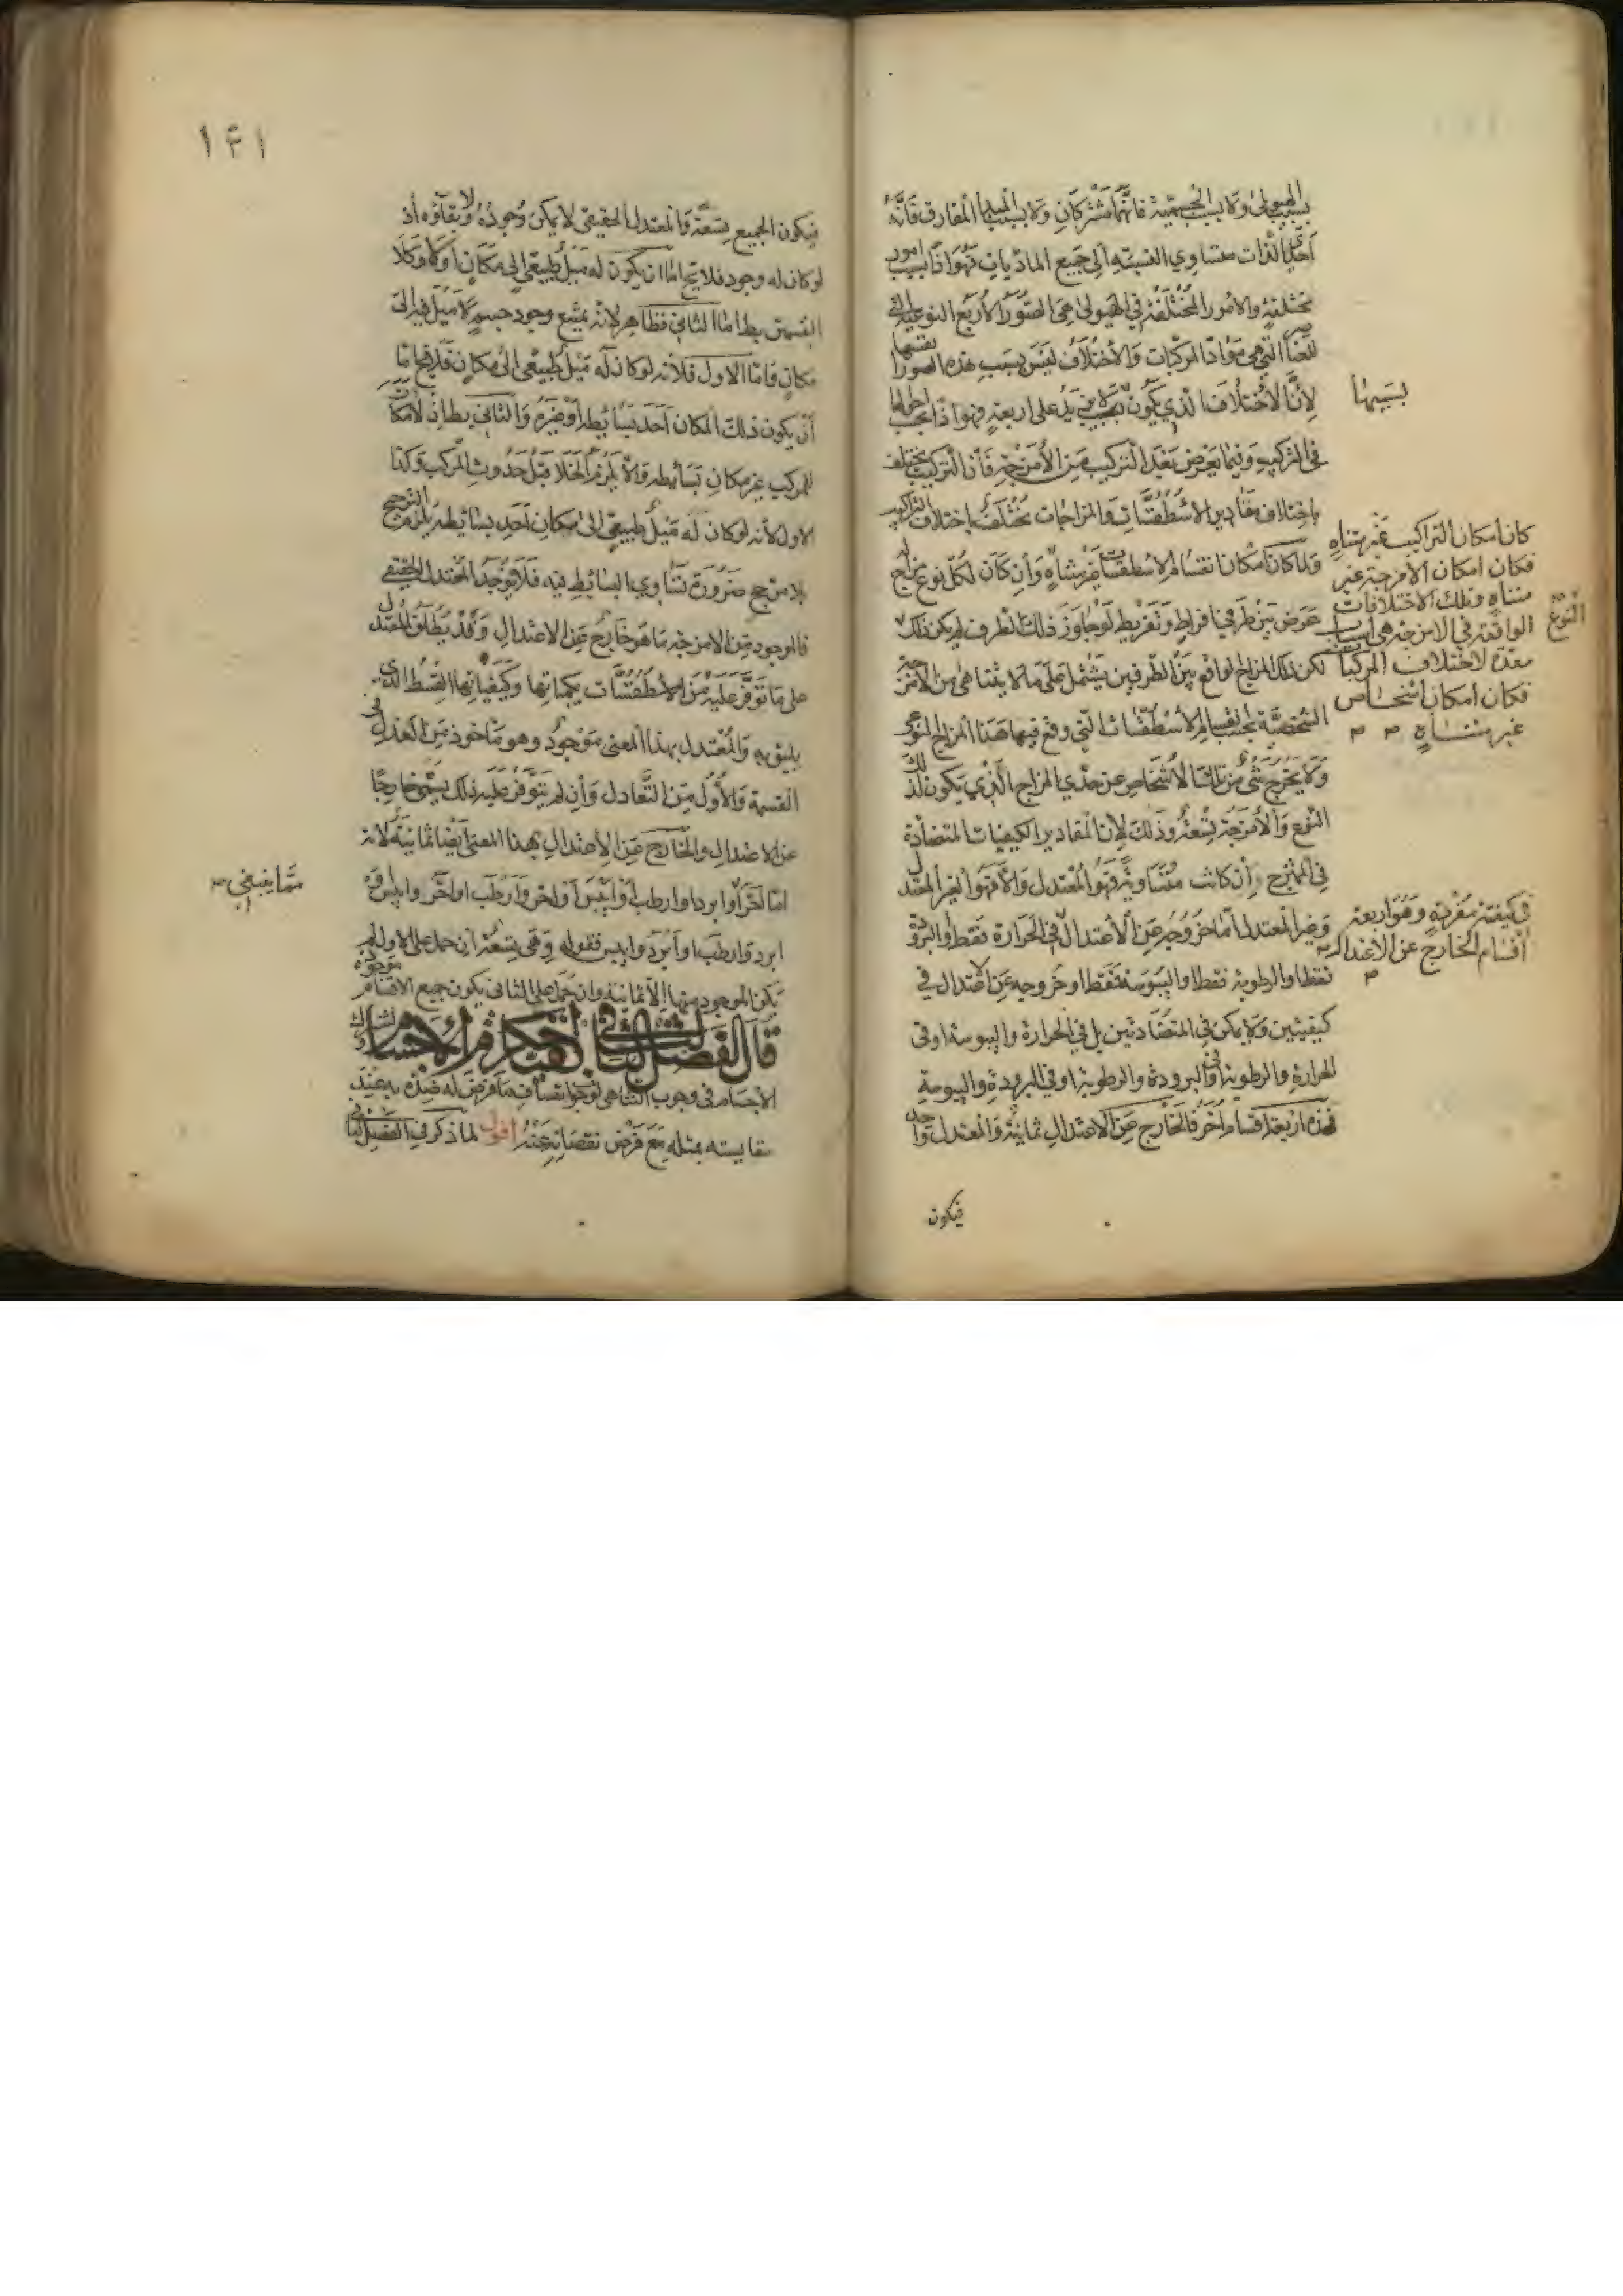 بسبب الهيولى ولا بسبب الجسمية فانهما مشتركان ولا بسبب المبدا المفارق فانه
احدي الذات متساوي النسبة الى جميع الماديات فهو اذا بسبب امور
مختلفة والامور المختلفة في الهيولى هي الصور الاربع النوعية التي
للعناصر التي هي مواد المركبات والاختلاف ليس بسبب هذه الصور انفسها
لان الاختلاف الذي يكون بسببها لا يزيد على اربعة فهو اذا بحسب احوالها
في التركيب وفيما يعرض بعد التركيب من الامزجة فان التركيب يختلف
باختلاف مقادير الاسطقسات والمزاجات تختلف باختلاف التراكيب
ولما كان امكان انقسام الاسطقسات غير متناه وان كان لكل نوع مزاج له
عرض بين طرفي افراط وتفريط لو جاوز ذلك الطرف لم يكن ذلك
لكن ذلك المزاج الواقع بين الطرفين يشتمل على ما لا يتناهى من الامزجة
الشخصية بحسب انقسام الاسطقسات التي وقع فيها هذا المزاج النوعي
ولا يخرج شئ من تلك الاشخاص عن حدي المزاج الذي يكون لذلك
النوع والامزجة تسعة وذلك لان المقادير الكيفيات المتضادة
في الممتزج ان كانت متساوية فهو المعتدل والا فهو الغير المعتدل
وغير المعتدل اما خروجه عن الاعتدال في الحرارة فقط او البرودة
فقط او الرطوبة فقط او اليبوسة فقط او خروجه عن الاعتدال في
كيفيتين ولا يمكن في المتضادتين بل في الحرارة واليبوسة او في
الحرارة والرطوبة او في البرودة والرطوبة او في البرودة واليبوسة
فهذه اربعة اقسام اخر فالخارج عن الاعتدال ثمانية والمعتدل واحد
فيكون
بسببها
كان امكان التراكيب غير متناه
فكان امكان الامزجة غير
متناه وتلك الاختلافات
الواقعة في الامزجة هي اسباب
معدة لاختلاف المركبات
فكان امكان اشخاص
غير متناه
النوع
في كيفية مفردة وهو اربعة
اقسام الخارج عن الاعتدال
١٤١
فيكون الجميع تسعة فالمعتدل الحقيقي لا يمكن وجوده ولا بقاؤه اذ
لو كان له وجود فلا يخ اما ان يكون له ميل طبيعي الى مكان او لا وكلا
القسمين بط اما الثاني فظاهر لانه يمتنع وجود جسم لا ميل فيه الى
مكان واما الاول فلانه لو كان له ميل طبيعي الى مكان فلا يخ اما
ان يكون ذلك المكان احد بسائطه او غيره والثاني بط اذ لا مكان
للمركب غير مكان بسائطه والا يلزم الخلا قبل حدوث المركب وكذا
الاول لانه لو كان له ميل طبيعي الى مكان احد بسائطه يلزم الترجيح
بلا مرجح ضرورة تساوي البسائط فيه فلا يوجد المعتدل الحقيقي
فالموجود من الامزجة ما هو خارج عن الاعتدال وقد يطلق المعتدل
على ما توفر عليه من الاسطقسات بكمياتها وكيفياتها القسط الذي
يليق به والمعتدل بهذا المعنى موجود وهو ماخوذ من العدل في
القسمة والاول من التعادل وان لم يتوفر عليه ذلك يسمى خارجا
عن الاعتدال والخارج عن الاعتدال بهذا المعنى ايضا ثمانية لانه
اما احر او ابرد او ارطب او ايبس او احر وارطب او احر وايبس او
ابرد وارطب او ابرد وايبس فقوله وهي تسعة ان حمل على الاول لم
يكن الموجود منها الا ثمانية وان حمل على الثاني يكون جميع الاقسام موجودة
قال الفصل الثالث في بقية احكام الاجسام وتشترك
الاجسام في وجوب التناهي لوجوب اتصاف ما فرض له ضده به عند
مقايسته بمثله مع فرض نقصانه عنه اقول لما ذكر في الفصل الثاني
مما ينبغي